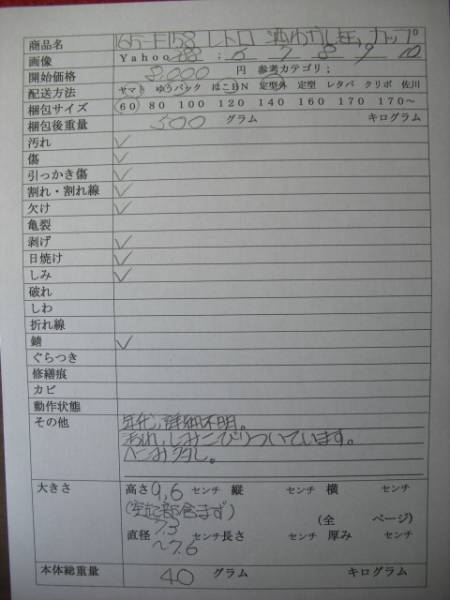 商品名 165-F158 レトロ 酒わかし缶, カップ
画像 Yahoo ; 6 7 8 9 10
開始価格 8,000 円 参考カテゴリ；
配送方法 ヤマト ゆうパック はこBN 定型外 定型 レタパ クリポ 佐川
梱包サイズ 60 80 100 120 140 160 170 170〜
梱包後重量 500 グラム キログラム
汚れ ✓
傷 ✓
引っかき傷 ✓
割れ・割れ線 ✓
欠け ✓
亀裂
剥げ ✓
日焼け ✓
しみ ✓
破れ
しわ
折れ線
錆 ✓
ぐらつき
修繕痕
カビ
動作状態
その他 年代,詳細不明。
よごれ,しみこびりついています。
へこみ多し。
大きさ 高さ 9,6 センチ 縦 センチ 横 センチ
(突起部含まず) (全 ページ)
直径 7.3 センチ長さ センチ 厚み センチ
〜7.6
本体総重量 40 グラム キログラム